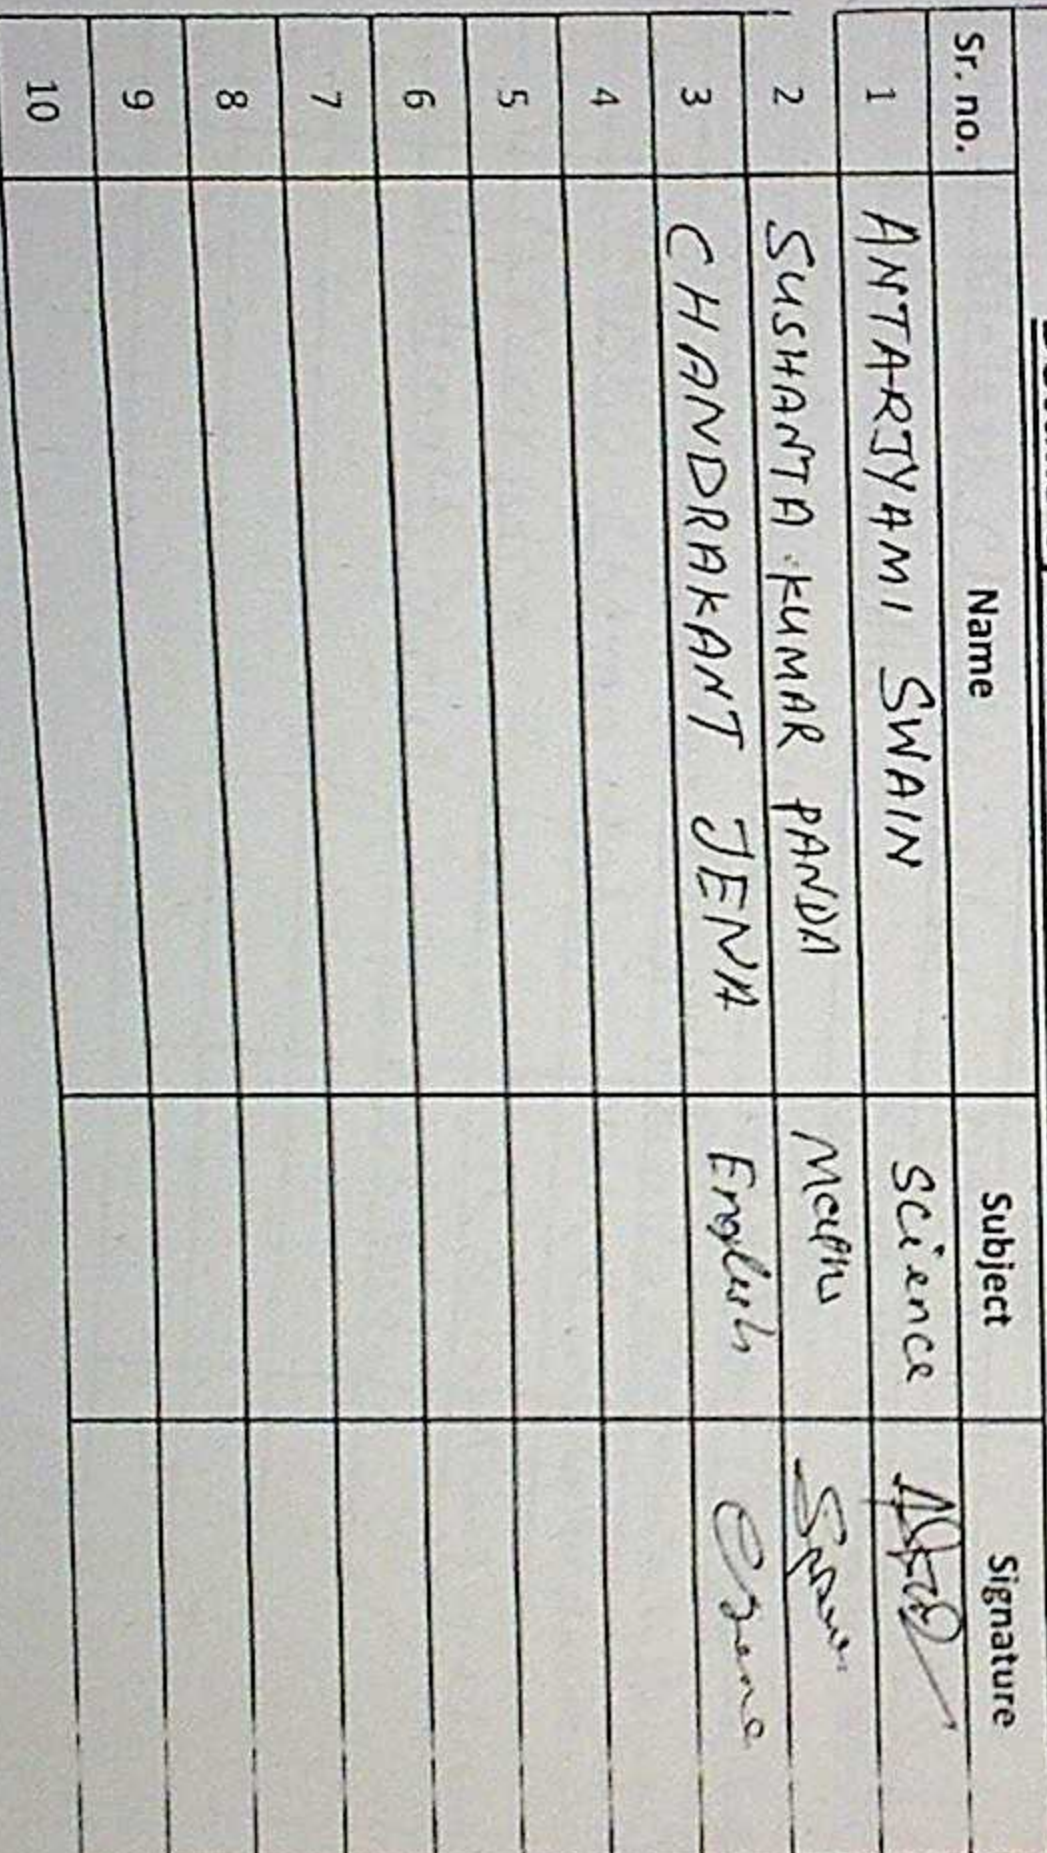 Sr. no. Name Subject Signature
1 ANTARJYAMI SWAIN Science
2 SUSHANTA KUMAR PANDA Maths
3 CHANDRAKANT JENA English CJena
4
5
6
7
8
9
10